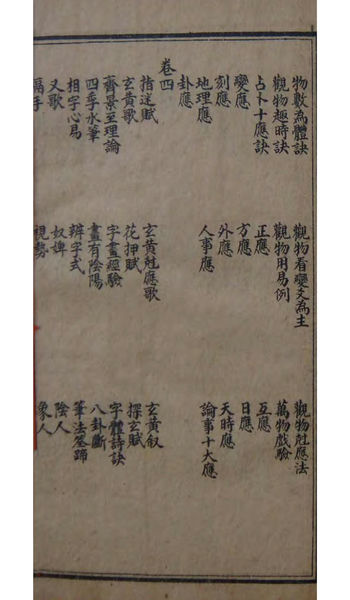 物數為體訣　觀物看變爻為主　觀物尅應法
觀物趣時訣　觀物用易例　萬物戲驗
占卜十應訣　正應　互應
變應　方應　日應
刻應　外應　天時應
地理應　人事應　論事十大應
卦應
卷四
指迷賦　玄黃尅應歌　玄黃叙
玄黃歌　花押賦　探玄賦
齊景至理論　字畫經驗　字體詩訣
四季水筆　畫有陰陽　八卦斷
相字心易　辨字式　筆法筌蹄
又歌　奴婢　陰人